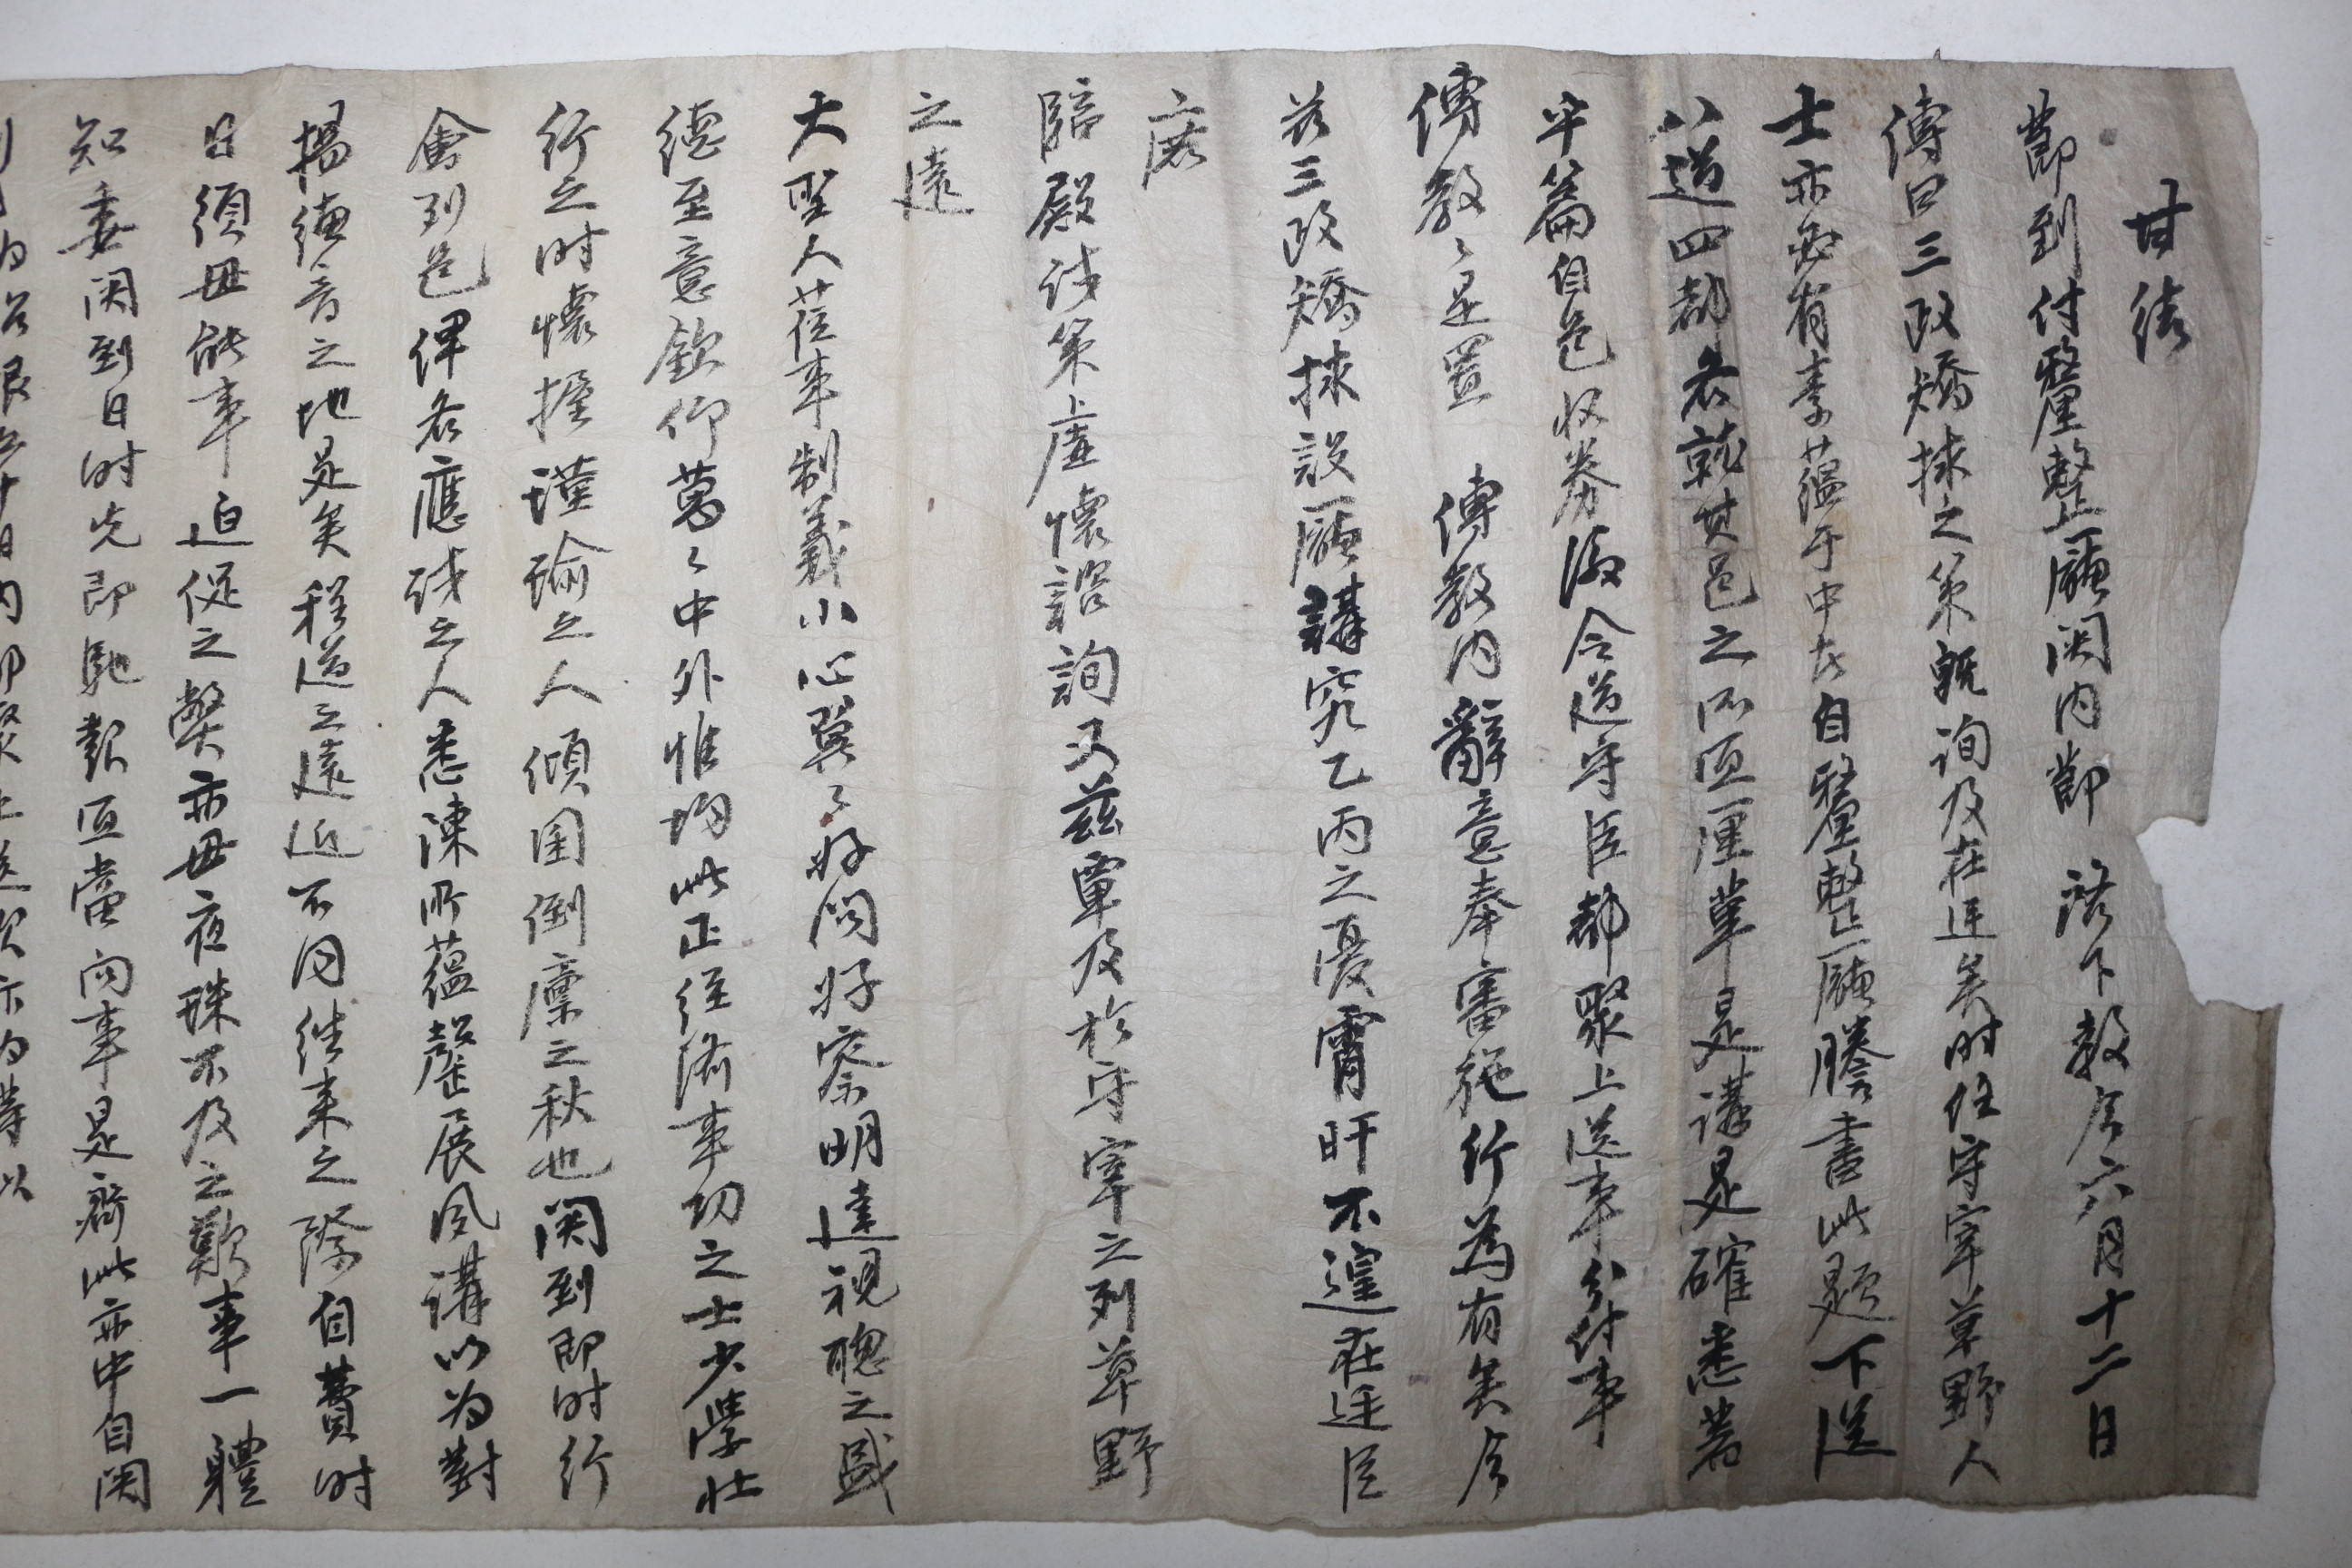 甘結
節到付釐整廳関內節 諮下敎今六月十二日
傳曰三政矯捄之策旣詢及在廷矣時任守宰草野人
士亦必有素蘊于中者自釐整廳謄書此題下送
八道四都各就其邑之所宜厘革是講是確悉著
平篇自邑收券後令道守臣都聚上送事分付事
傳敎敎是置 傳敎內辭意奉審施行爲有矣今
玆三政矯捄設廳講究乙丙之憂宵旰不遑在廷臣
庶
臨殿試策上虛懷諮詢又玆覃及於守宰之列草野
之遠
大聖人莅事制義小心翼翼好問好察明達視聰之盛
德至意欽仰萬萬中外惟均此正經濟事功之士少學壯
行之時懷握瑾瑜之人傾囷倒廩之秋也関到卽時行
會列邑俾各應試之人悉陳所蘊罄展風講以为對
揚德音之地是矣程道之遠近不同往來之際自費時
日須毋能事迫促之弊亦毋夜珠不及之歎事一體
知委関到日時先卽馳報宜當向事是齊此亦中自関